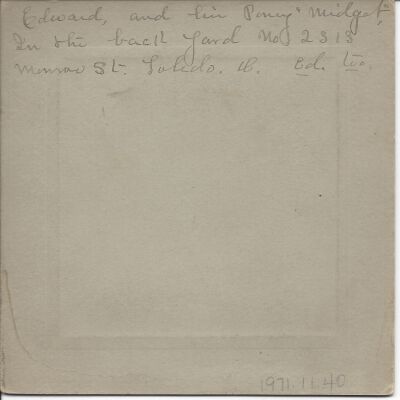 Edward, and his Poney "Midget"
In the back yard No 2313
Monroe St. Toledo. O. Ed. too.
1971.11.40